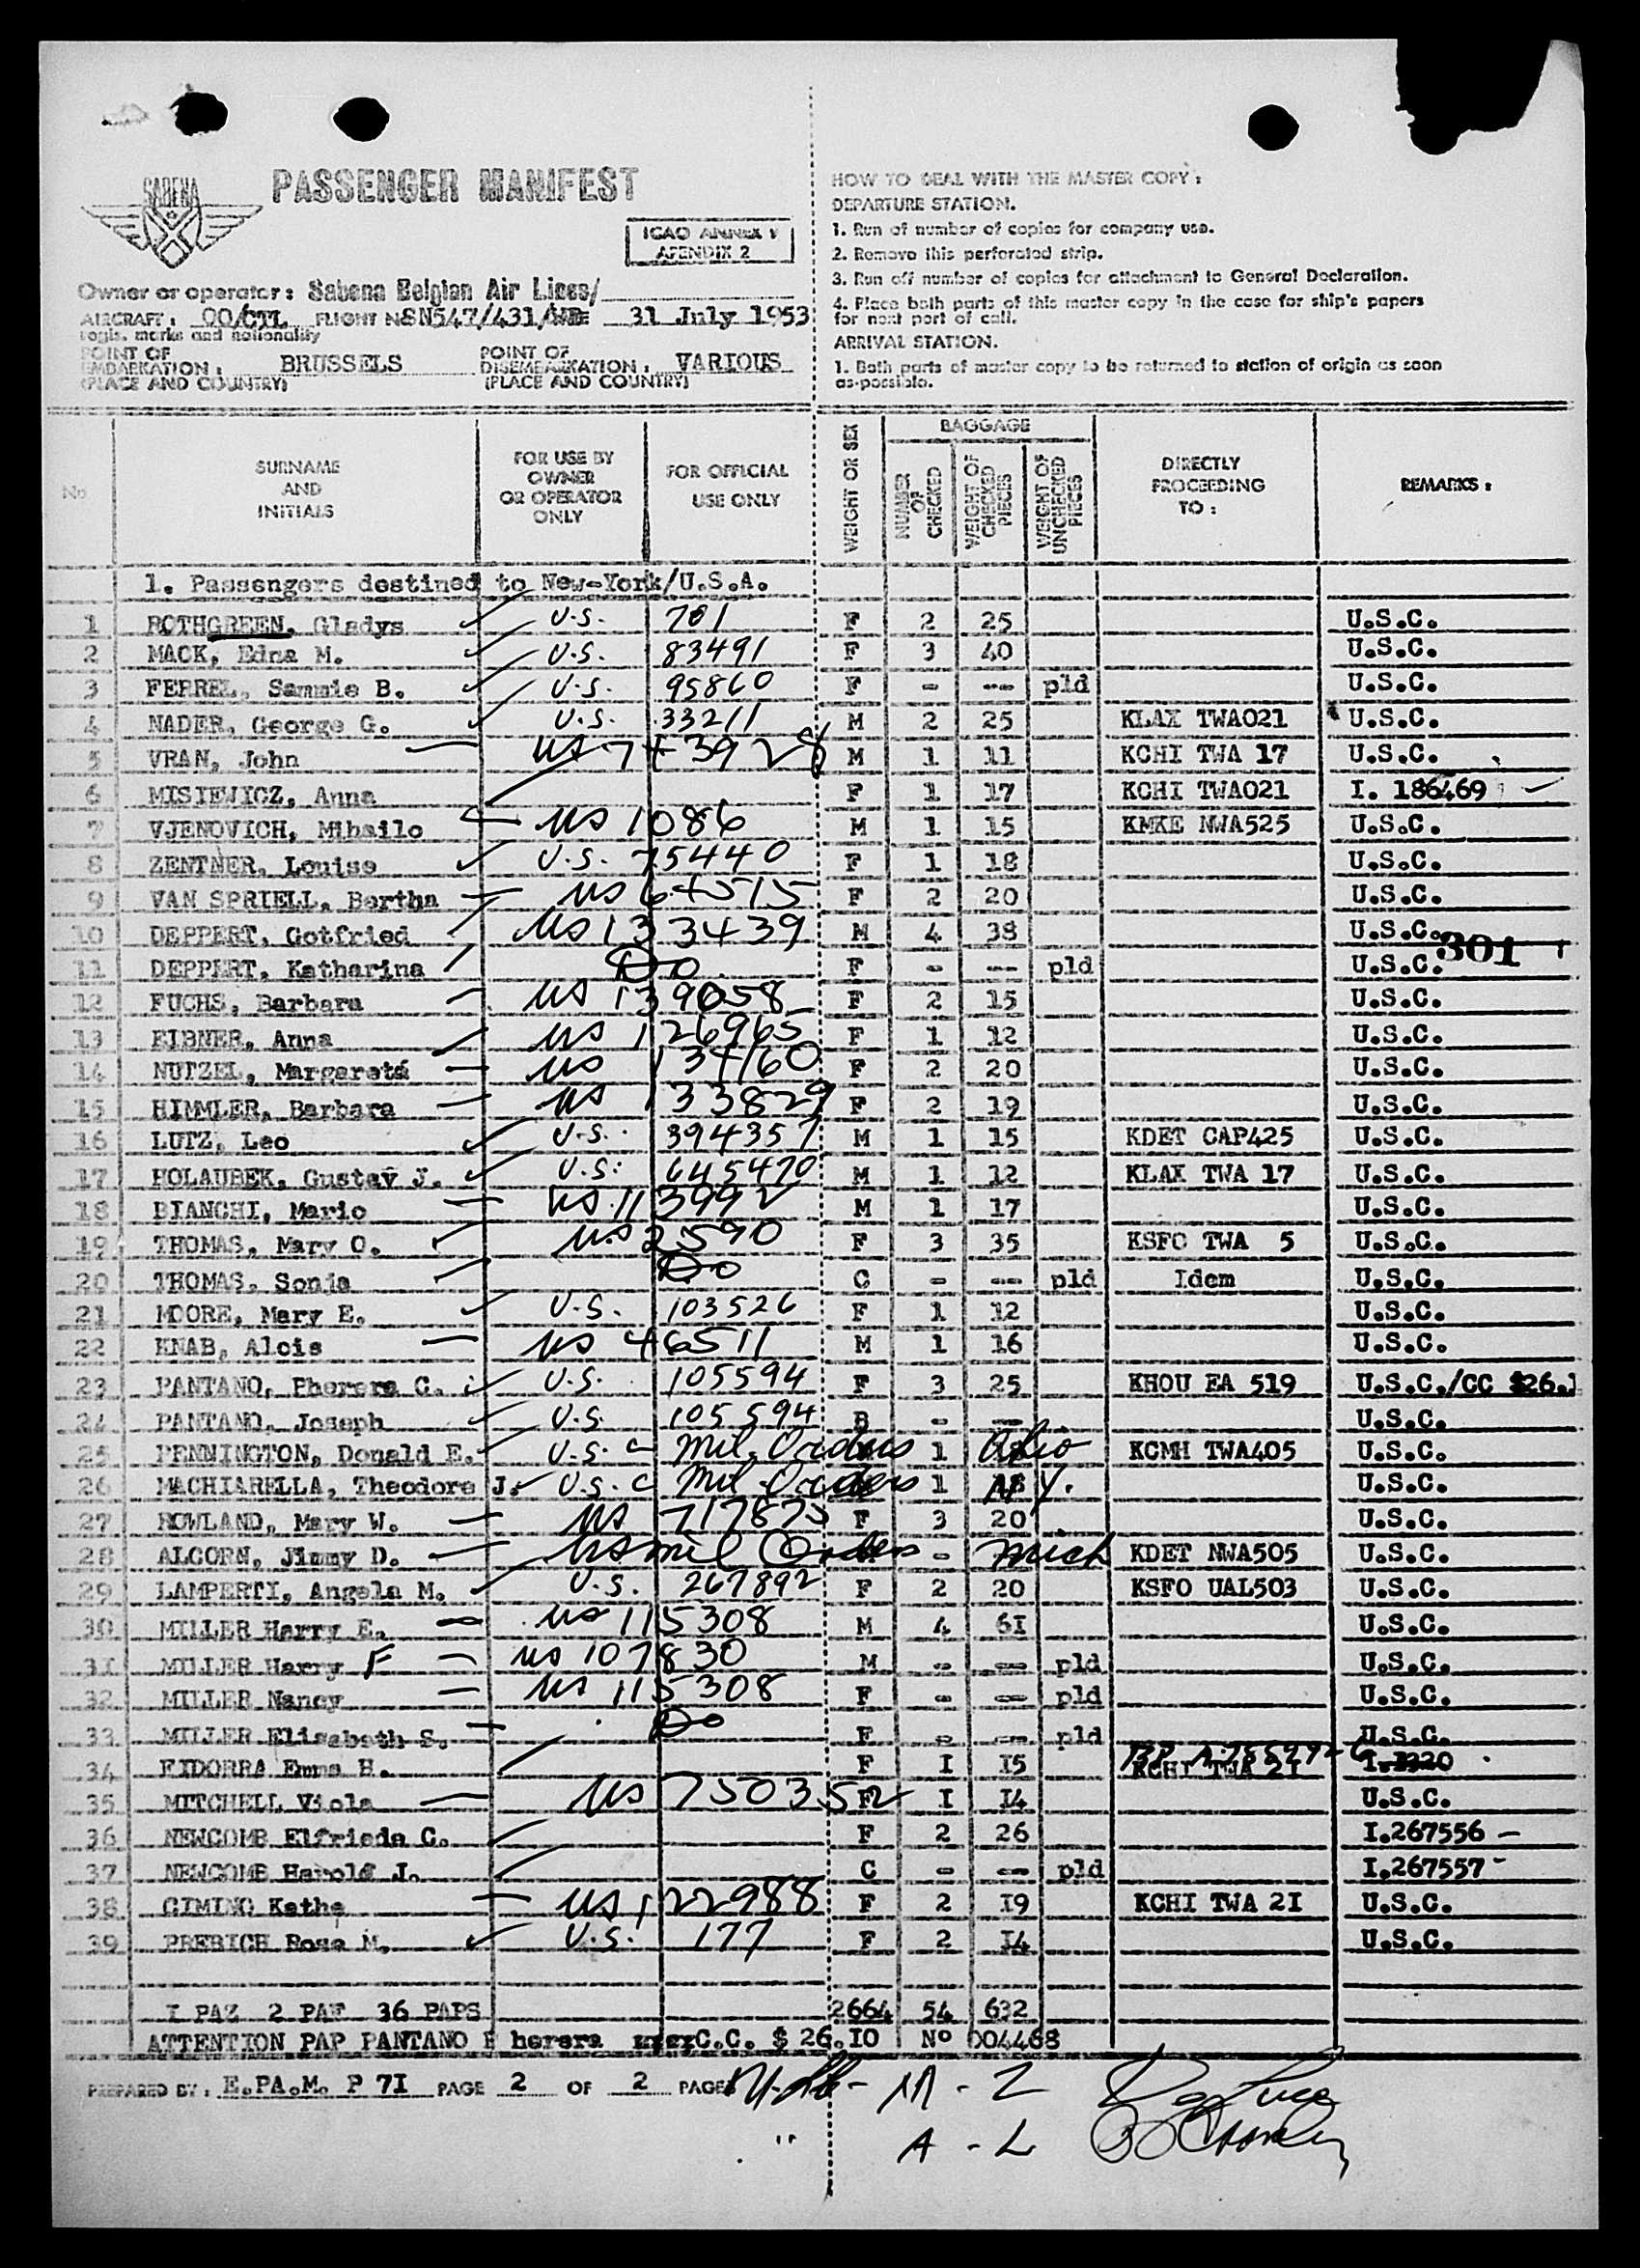 SABENA
PASSENGER MANIFEST
ICAO ANNEX 9
APENDIX 2
Owner or operator : Sabena Belgian Air Lines/
AIRCRAFT : OO/CTL FLIGHT N SN547/431/ 31 July 1953
regis. marks and nationality
POINT OF EMBARKATION : BRUSSELS POINT OF DISEMBARKATION : VARIOUS
(PLACE AND COUNTRY) (PLACE AND COUNTRY)
HOW TO DEAL WITH THE MASTER COPY :
DEPARTURE STATION.
1. Run of number of copies for company use.
2. Remove this perforated strip.
3. Run off number of copies for attachment to General Declaration.
4. Place both parts of this master copy in the case for ship's papers
for next port of call.
ARRIVAL STATION.
1. Both parts of master copy to be returned to station of origin as soon
as possible.
No SURNAME AND INITIALS FOR USE BY OWNER OR OPERATOR ONLY FOR OFFICIAL USE ONLY WEIGHT OR SEX BAGGAGE NUMBER OF CHECKED WEIGHT OF CHECKED PIECES WEIGHT OF UNCHECKED PIECES DIRECTLY PROCEEDING TO : REMARKS :
1. Passengers destined to New-York/U.S.A.
1 ROTHGREEN, Gladys U.S. 701 F 2 25 U.S.C.
2 MACK, Edna M. U.S. 83491 F 3 40 U.S.C.
3 FERREL, Sammie B. U.S. 95860 F - -- pld U.S.C.
4 NADER, George G. U.S. 33211 M 2 25 KLAX TWA021 U.S.C.
5 VRAN, John US 743928 M 1 11 KCHI TWA 17 U.S.C.
6 MISIEWICZ, Anna F 1 17 KCHI TWA021 I. 186469
7 VJENOVICH, Mihailo US 1086 M 1 15 KMKE NWA525 U.S.C.
8 ZENTNER, Louise U.S. 75440 F 1 18 U.S.C.
9 VAN SPRIELL, Bertha US 64515 F 2 20 U.S.C.
10 DEPPERT, Gotfried US 133439 M 4 38 U.S.C.
301
11 DEPPERT, Katharina Do F - -- pld U.S.C.
12 FUCHS, Barbara US 139058 F 2 15 U.S.C.
13 EIBNER, Anna US 126965 F 1 12 U.S.C.
14 NUTZEL, Margareta US 134160 F 2 20 U.S.C.
15 HIMMLER, Barbara US 133829 F 2 19 U.S.C.
16 LUTZ, Leo U.S. 394357 M 1 15 KDET CAP425 U.S.C.
17 HOLAUBEK, Gustav J. U.S. 645470 M 1 12 KLAX TWA 17 U.S.C.
18 BIANCHI, Mario US 113992 M 1 17 U.S.C.
19 THOMAS, Mary O. US 2590 F 3 35 KSFO TWA 5 U.S.C.
20 THOMAS, Sonia Do C - -- pld Idem U.S.C.
21 MOORE, Mary E. U.S. 103526 F 1 12 U.S.C.
22 KNAB, Alois US 46511 M 1 16 U.S.C.
23 PANTANO, Pherera C. U.S. 105594 F 3 25 KHOU EA 519 U.S.C./CC $26.1
24 PANTANO, Joseph U.S. 105594 B - -- U.S.C.
25 PENNINGTON, Donald E. U.S. C Mil. Orders 1 Ohio KCMH TWA405 U.S.C.
26 MACHIARELLA, Theodore J. U.S. C Mil. Orders 1 N.Y. U.S.C.
27 ROWLAND, Mary W. US 717875 F 3 20 U.S.C.
28 ALCORN, Jimmy D. US mil Orders - Mich KDET NWA505 U.S.C.
29 LAMPERTI, Angela M. U.S. 267892 F 2 20 KSFO UAL503 U.S.C.
30 MILLER Harry E. US 115308 M 4 6I U.S.C.
3I MILLER Harry F US 107830 M - -- pld U.S.C.
32 MILLER Nancy US 115308 F - -- pld U.S.C.
33 MILLER Elisabeth S. Do F - -- pld U.S.C.
34 EIDORRA Emma H. F I I5 KCHI TWA 2I
35 MITCHELL Viola US 750352 F I I4 U.S.C.
36 NEWCOMB Elfrieda C. F 2 26 I.267556
37 NEWCOMB Harold J. C - -- pld I.267557
38 CIMINO Kathe US 122988 F 2 I9 KCHI TWA 2I U.S.C.
39 PREBICH Rose M. U.S. 177 F 2 I4 U.S.C.
I PAZ 2 PAF 36 PAPS 2664 54 632
ATTENTION PAP PANTANO P herera C.C. $ 26.IO No 004468
PREPARED BY : E.PA.M. P 7I PAGE 2 OF 2 PAGES
M - Z
" A - L